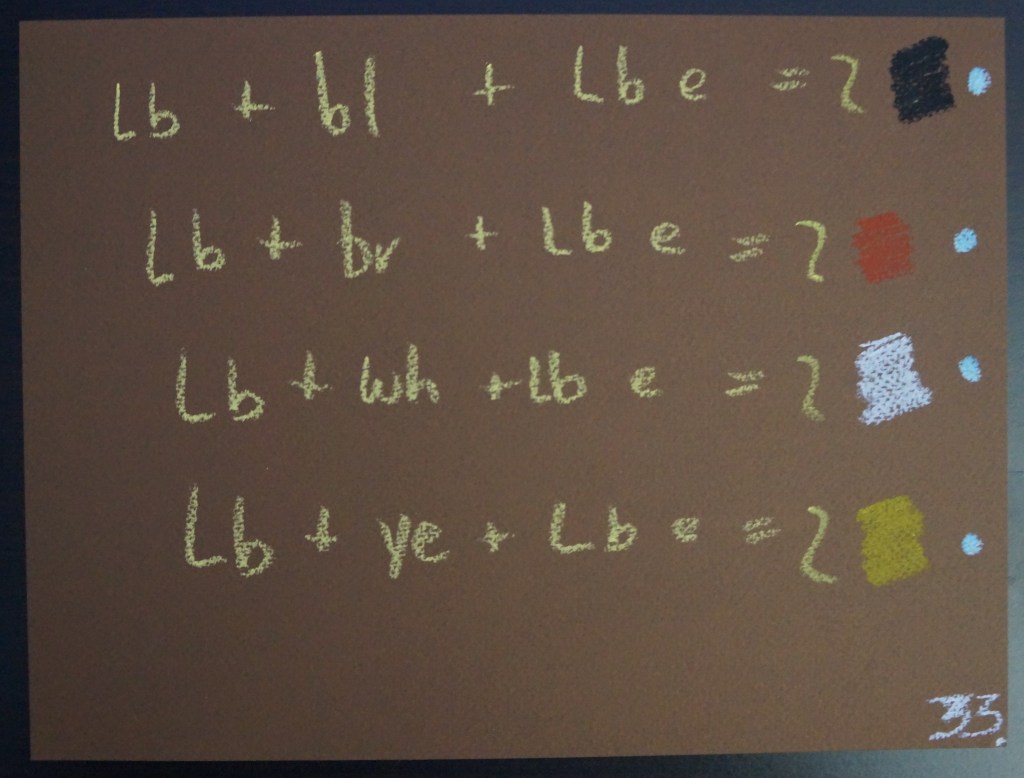 Lb + bl + Lb e = 2
Lb + br + Lb e = 2
Lb + wh + Lb e = 2
Lb + ye + Lb e = 2
33.